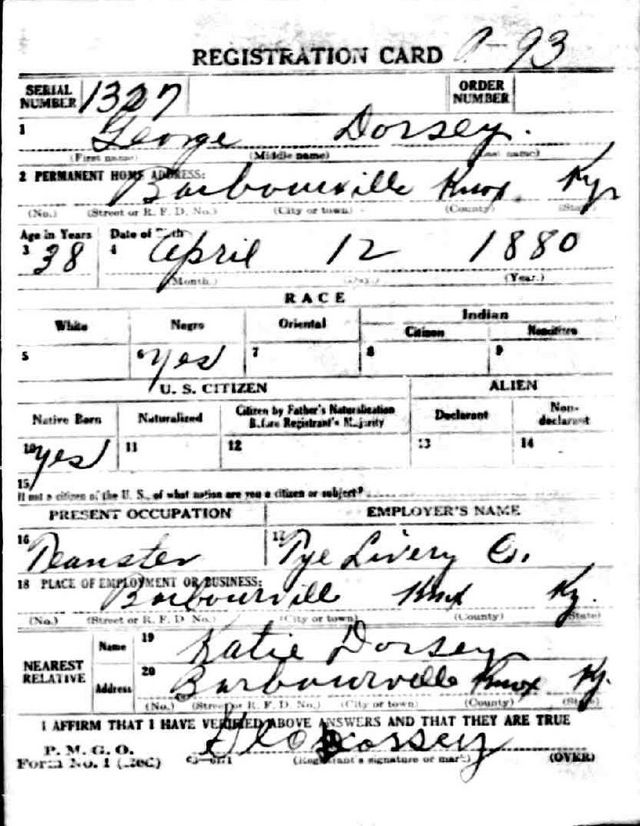 REGISTRATION CARD A-93
SERIAL NUMBER 1327 ORDER NUMBER
1 George Dorsey.
(First name) (Middle name) (Last name)
2 PERMANENT HOME ADDRESS: Barbourville Knox, Ky,
(No.) (Street or R. F. D. No.) (City or town) (County) (State)
Age in Years Date of Birth
3 38 4 April 12 1880
(Month.) (Day.) (Year.)
RACE
White Negro Oriental Indian
Citizen Noncitizen
5 6 Yes 7 8 9
U. S. CITIZEN ALIEN
Native Born Naturalized Citizen by Father's Naturalization Before Registrant's Majority Declarant Non-declarant
10 yes 11 12 13 14
15
If not a citizen of the U. S., of what nation are you a citizen or subject?
PRESENT OCCUPATION EMPLOYER'S NAME
16 Teamster 17 Pye Livery Co.
18 PLACE OF EMPLOYMENT OR BUSINESS:
Barbourville Knox Ky.
(No.) (Street or R. F. D. No.) (City or town) (County) (State)
NEAREST RELATIVE Name 19 Katie Dorsey
Address 20 Barbourville Knox Ky.
(No.) (Street or R. F. D. No.) (City or town) (County) (State)
I AFFIRM THAT I HAVE VERIFIED ABOVE ANSWERS AND THAT THEY ARE TRUE
P. M. G. O.
Form No. 1 (Red) (Registrant's signature or mark) (OVER)